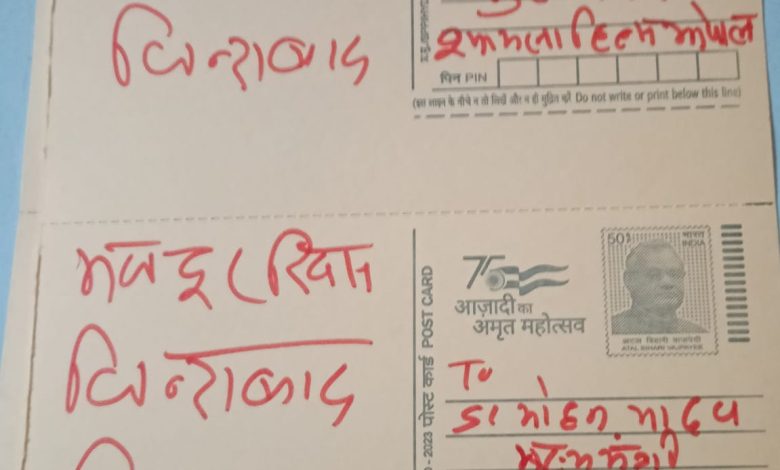 जिन्दाबाद
श्यामला हिल्स भोपाल
पिन PIN
(इस लाइन के नीचे न तो लिखें और न ही मुद्रित करें Do not write or print below this line)
मजदूर किसान
जिन्दाबाद
75
आज़ादी का
अमृत महोत्सव
50
भारत
INDIA
अटल बिहारी वाजपेयी
ATAL BIHARI VAJPAYEE
2023 पोस्ट कार्ड POST CARD
To
डॉ मोहन यादव